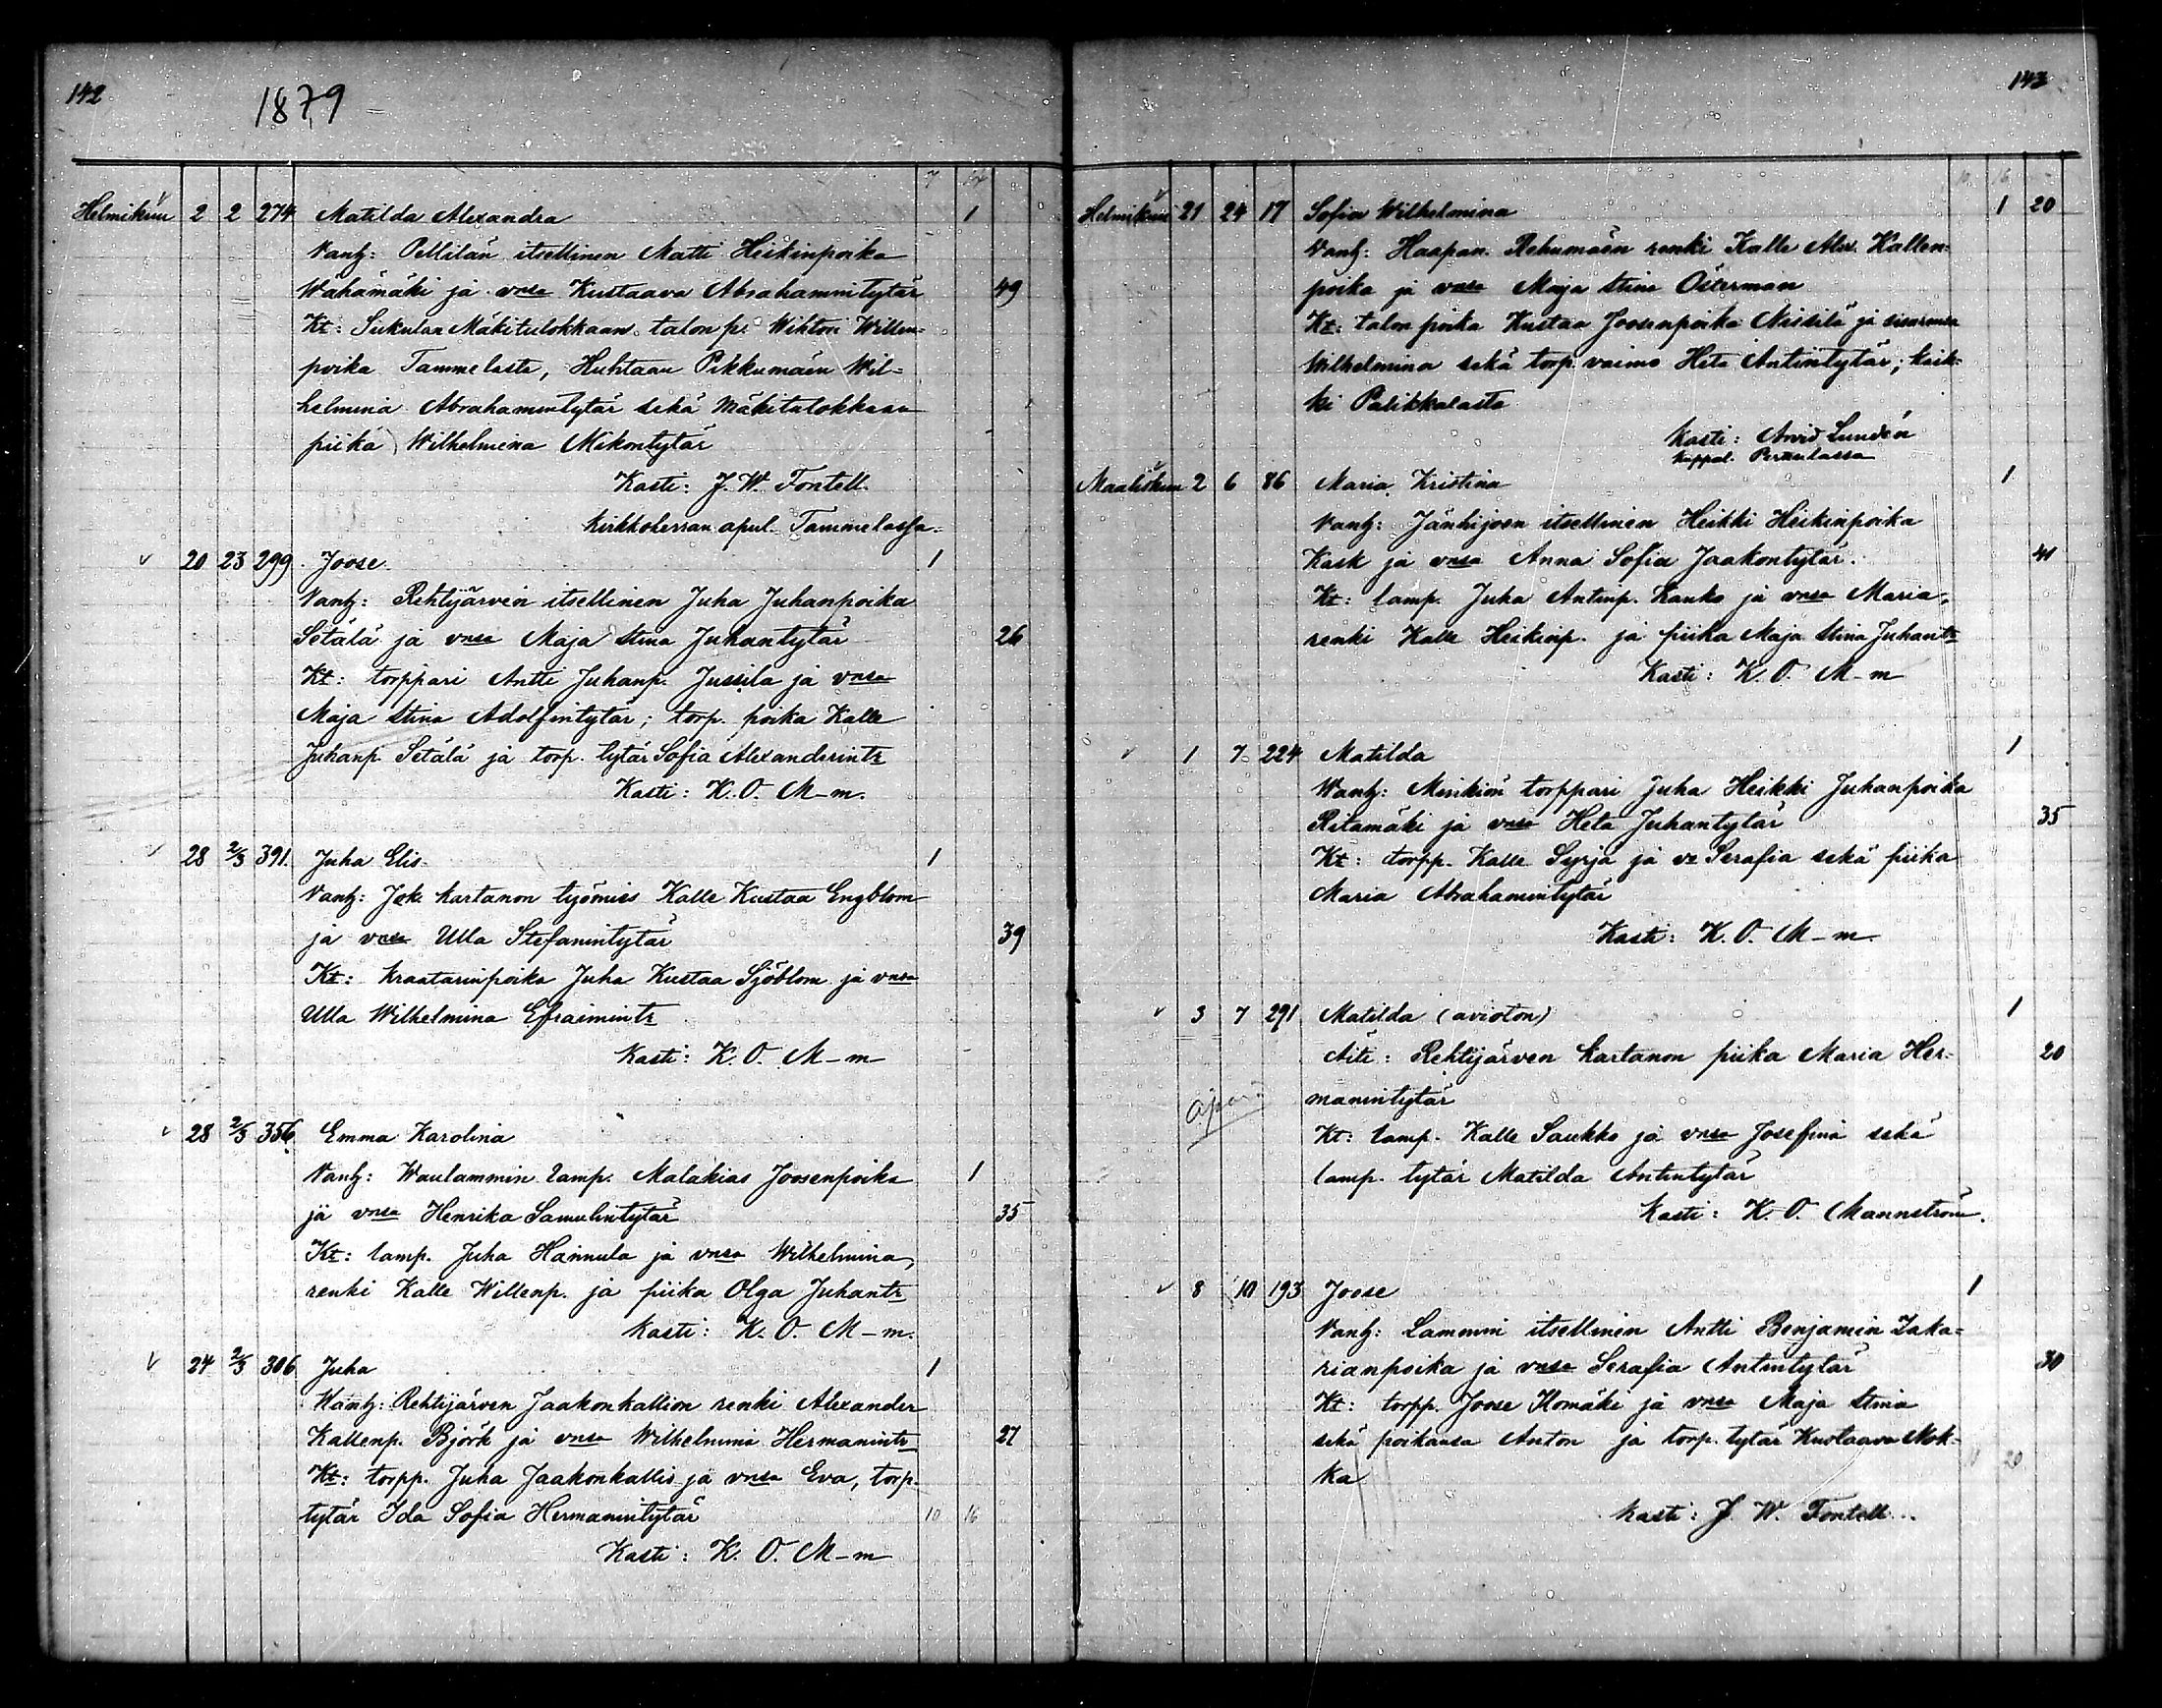 142
1879
7 14
Helmikuu 2 2 274 Matilda Alexandra 1
Vanh: Pellilän itsellinen Matti Heikinpoika
Wahämäki ja vnsa Kustaava Abrahamintytär 49
Kt: Sukulan Mäkitulokkaan talon p. Wihtori Willen-
poika Tammelasta, Huhtaan Pikkumäen Wil-
helmina Abrahamintytär sekä Mäkitulokkaan
piika Wilhelmina Mikontytär
Kasti: J. W. Fontell.
Kirkkoherran apul. Tammelassa.
20 23 299 Joose 1
Vanh: Rehtijärven itsellinen Juha Juhanpoika
Setälä ja vnsa Maja Stina Juhantytär 26
Kt: torppari Antti Juhanp. Jussila ja vnsa
Maja Stina Adolfintytär; torp. poika Kalle
Juhanp. Setälä ja torp. tytär Sofia Alexanderintr
Kasti: K. O. M-m.
28 2/3 391. Juha Elis 1
Vanh: Jok. kartanon työmies Kalle Kustaa Engblom
ja vnsa Ulla Stefanintytär 39
Kt: kraatarinpoika Juha Kustaa Sjöblom ja vnsa
Ulla Wilhelmina Efraimintr
Kasti: K. O. M-m
28 2/3 356 Emma Karolina
Vanh: Waulammin lamp. Malakias Joosenpoika 1
ja vnsa Henrika Samulintytär 35
Kt: lamp. Juha Hannula ja vnsa Wilhelmina,
renki Kalle Willenp. ja piika Olga Juhantr
Kasti: K. O. M-m.
24 2/3 306 Juha 1
Wanh: Rehtijärven Jaakonkallion renki Alexander
Kallenp. Björk ja vnsa Wilhelmina Hermanintr 27
Kt: torpp. Juha Jaakonkallio ja vnsa Eva, torp.
tytär Ida Sofia Hermanintytär 10 16
Kasti: K. O. M-m
143
10 16
Helmikuu 21 24 17 Sofia Wilhelmina 1 20
Vanh: Haapan. Rehumäen renki Kalle Alex. Kallen-
poika ja vnsa Maja Stina Österman
Kt: talon poika Kustaa Joosenpoika Nissilä ja sisarensa
Wilhelmina sekä torp. vaimo Heta Antintytär; kaik-
ki Palikkalasta
Kasti: Arvid Lundén
Kappal. Perttulassa
Maaliskuu 2 6 86 Maria Kristina 1
Vanh: Jänhijoen itsellinen Heikki Heikinpoika
Kask ja vnsa Anna Sofia Jaakontytär. 41
Kt: lamp. Juha Antinp. Kanko ja vnsa Maria,
renki Kalle Heikinp. ja piika Maja Stina Juhantr
Kasti: K. O. M-m
1 7 224 Matilda 1
Wanh: Minkiön torppari Juha Heikki Juhanpoika
Ritamäki ja vnsa Heta Juhantytär 35
Kt: torpp. Kalle Syrjä ja vo Serafia sekä piika
Maria Abrahamintytär
Kasti: K. O. M-m.
3 7 291 Matilda (avioton) 1
Äiti: Rehtijärven kartanon piika Maria Her- 20
manintytär
Kt: lamp. Kalle Saukko ja vnsa Josefina sekä
lamp. tytär Matilda Antintytär
Kasti: K. O. Mannström.
8 10 193 Joose 1
Vanh: Lammin itsellinen Antti Benjamin Zaka-
rianpoika ja vnsa Serafia Antintytär 30
Kt: torpp. Joose Komäki ja vnsa Maja Stina
sekä poikansa Anton ja torp. tytär Kustaava Nok-
ka 20
Kasti: J. W. Fontell.